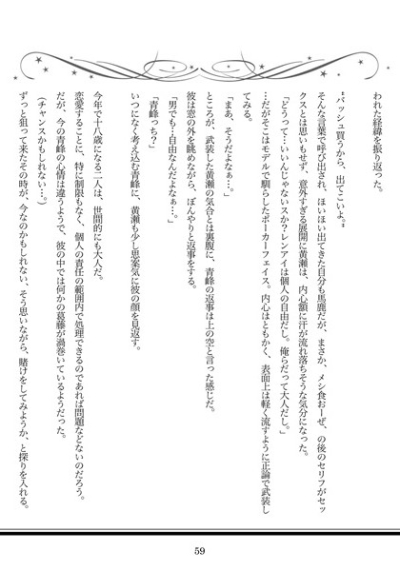 われた経緯を振り返った。
“バッシュ買うから、出てこいよ。”
そんな言葉で呼び出され、ほいほい出てきた自分も馬鹿だが、まさか、メシ食おーぜ、の後のセリフがセッ
クスとは思いもせず、意外すぎる展開に黄瀬は、内心額に汗が流れ落ちそうな気分になった。
「どうって…いいんじゃないスか？レンアイは個人の自由だし。俺らだって大人だし。」
…だがそこはモデルで馴らしたポーカーフェイス。内心はともかく、表面上は軽く流すように正論で武装し
てみる。
「まあ、そうだよなぁ…。」
ところが、武装した黄瀬の気合とは裏腹に、青峰の返事は上の空と言った感じだ。
彼は窓の外を眺めながら、ぼんやりと返事をする。
「男でも…自由なんだよなぁ…。」
「青峰っち？」
いつになく考え込む青峰に、黄瀬も少し思案気に彼の顔を見返す。
今年で十八歳になる二人は、世間的にも大人だ。
恋愛することに、特に制限もなく、個人の責任の範囲内で処理できるのであれば問題などないのだろう。
だが、今の青峰の心情は違うようで、彼の中では何かの葛藤が渦巻いているようだった。
（チャンスかもしれない…。）
ずっと狙って来たその時が、今なのかもしれない。そう思いながら、賭けをしてみようか、と探りを入れる。
59